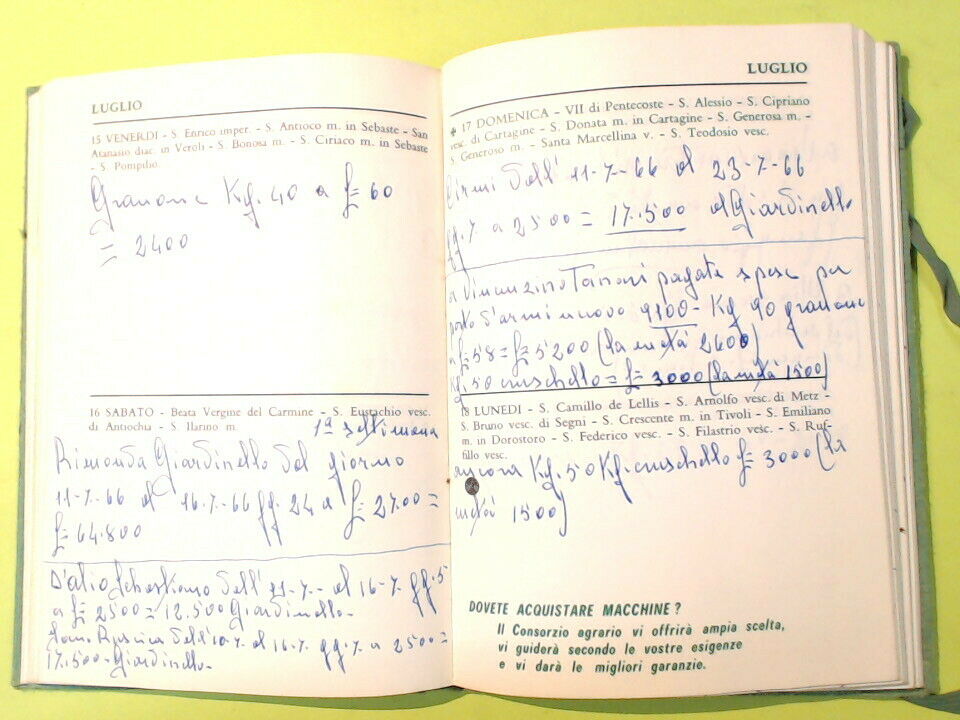 LUGLIO
15 VENERDI - S. Enrico imper. - S. Antioco m. in Sebaste - San
Atanasio diac. in Veroli - S. Bonosa m. - S. Ciriaco m. in Sebaste
- S. Pompilio
Granone Kg. 40 a £ 60
= 2400
16 SABATO - Beata Vergine del Carmine - S. Eustachio vesc.
di Antiochia - S. Ilarino m.
1ª settimana
Rimonda Giardinello del giorno
11-7-66 al 16-7-66 gg. 24 a £ 2700 =
£ 64.800
D'alio Sebastiano dell' 11-7- al 16-7- gg. 5
a £ 2500 = 12.500 Giardinello-
dell' 10.7. al 16-7. gg. 7. a 2500 =
17.500 - Giardinello-
LUGLIO
17 DOMENICA - VII di Pentecoste - S. Alessio - S. Cipriano
vesc. di Cartagine - S. Donata m. in Cartagine - S. Generosa m. -
S. Generoso m. - Santa Marcellina v. - S. Teodosio vesc.
dell' 11-7-66 al 23-7-66
gg. 7 a 2500 = 17.500 al Giardinello
a Vincenzino pagate spese per
porto d'armi nuovo 9100 - Kg 90 granone
a £ 58 = £ 5200 (la metà 2600)
Kg. 50 cruschello = £ 3000 (la metà 1500)
18 LUNEDI - S. Camillo de Lellis - S. Arnolfo vesc. di Metz -
S. Bruno vesc. di Segni - S. Crescente m. in Tivoli - S. Emiliano
m. in Dorostoro - S. Federico vesc. - S. Filastrio vesc. - S. Ruf-
fillo vesc.
ancora Kg. 50 Kg. cruschello £ 3000 (la
metà 1500)
DOVETE ACQUISTARE MACCHINE ?
Il Consorzio agrario vi offrirà ampia scelta,
vi guiderà secondo le vostre esigenze
e vi darà le migliori garanzie.